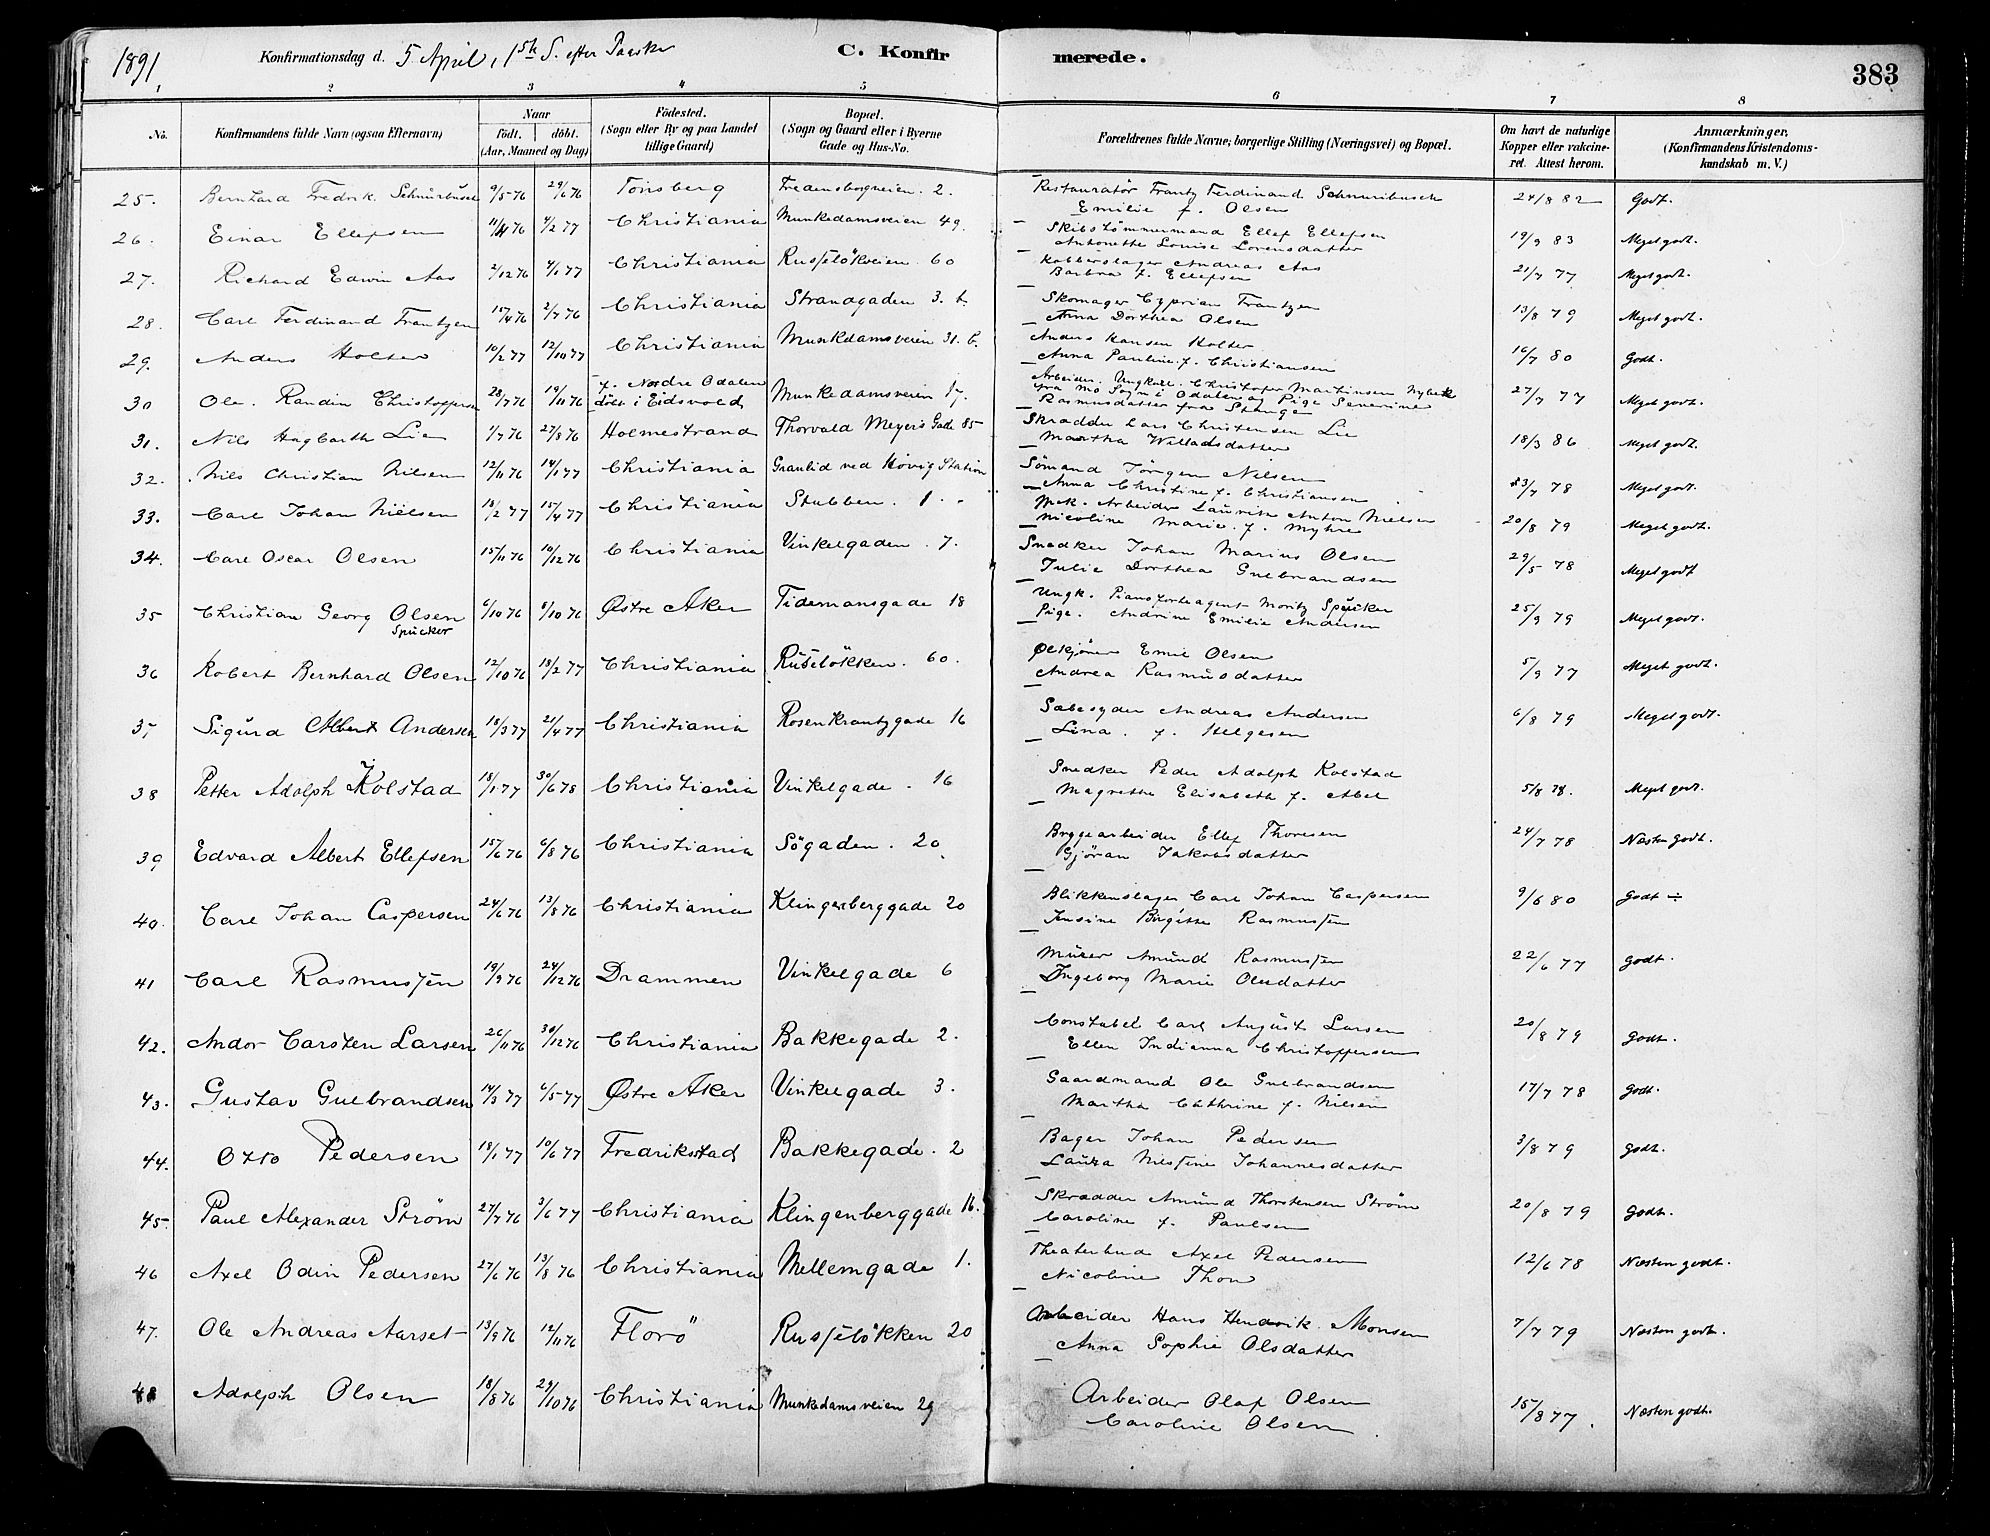 1891 Konfirmationsdag d. 5 April, 1ste S. efter Paaske C. Konfir merede. 383
1 2 3 4 5 6 7 8
No. Konfirmandens fulde Navn (ogsaa Efternavn) Naar födt. döbt. (Aar, Maaned og Dag) Födested. (Sogn eller By og paa Landet tillige Gaard) Bopæl. (Sogn og Gaard eller i Byerne Gade og Hus-No. Forældrenes fulde Navne; borgerlige Stilling (Næringsvei) og Bopæl. Om havt de naturlige Kopper eller vakcineret. Attest herom. Anmærkninger. (Konfirmandens Kristendomskundskab m. V.)
25. Bernhard Fredrik Schnurbusch 9/5 76 29/6 76 Tönsberg Fredensborgveien. 2. Restauratör Frantz Ferdinand Schnurbusch 24/8 82 Godt.
Emilie f. Olsen
26. Einar Ellefsen 11/11 76 4/2 77 Christiania Munkedamsveien 49. Skibstömmermand Ellef Ellefsen 19/9 83 Meget godt.
Antonette Louise Lorensdatter
27. Richard Edwin Aas 2/12 76 4/1 77 Christiania Rusjelökveien. 60 Kobberslager Andreas Aas 21/7 77 Meget godt.
Barbra f. Ellefsen
28. Carl Ferdinand Frantzen 15/4 76 2/7 76 Christiania Strandgaden 3. b. Skomager Cyprian Frantzen 13/8 79 Meget godt.
Anna Dorthea Olsen
29. Anders Holter 10/2 77 12/10 77 Christiania Munkedamsveien 31. b. Anders Hansen Holter 16/7 80 Godt.
Anna Pauline f. Christiansen
30 Ole Randin Christoffersen 28/7 76 19/11 76 f. Nordre Odalen döbt i Eidsvold Munkedamsveien 17. Arbeider. Ungkall. Christofer Martinsen Nybæk 27/7 77 Meget godt.
fra Mo Sogn i Odalen og Pige Severine
Rasmusdatter fra Stange
31. Nils Hagbarth Lie 1/7 76 27/8 76 Holmestrand Thorvald Meyers Gade 85 Skrædder Lars Christensen Lie 18/3 86 Meget godt.
Martha Willadsdatter
32. Nils Christian Nilsen 12/11 76 14/1 77 Christiania Granlid ved Hövig Station Sömand Jörgen Nilsen 23/7 78 Meget godt.
Anna Christine f. Christiansen
33. Carl Johan Nielsen 18/2 77 15/4 77 Christiania Stubben. 1. Mek. Arbeider Lauritz Anton Nielsen 20/8 79 Meget godt.
Nicoline Marie f. Myhre
34. Carl Oscar Olsen 15/11 76 10/12 76 Christiania Vinkelgaden. 7. Snedker Johan Marius Olsen 29/5 78 Meget godt
Julie Dorthea Gulbrandsen
35 Christian Georg Olsen 6/10 76 8/10 76 Østre Aker Tidemansgade 18 Ungk. Pianoforteagent Moritz Spücker 25/9 79 Meget godt.
Spücker Pige. Andrine Emilie Andersen
36 Robert Bernhard Olsen 12/10 76 18/2 77 Christiania Rüselökken. 60. Ølkjörer Emil Olsen 5/9 77 Meget godt.
Andrea Rasmusdatter
37 Sigurd Albert Andersen 18/3 77 21/4 77 Christiania Rosenkrantzgade 16 Sæbesyder Andreas Andersen 6/8 79 Meget godt.
Lina. f. Helgesen
38 Petter Adolph Kolstad 18/1 77 30/6 78 Christiania Vinkelgade. 16 Snedker Peder Adolph Kolstad 5/8 78. Meget godt.
Magrethe Elisabeth f. Abel
39 Edvard Albert Ellefsen 15/6 76 6/8 76 Christiania Sögaden. 20 Bryggearbeider Ellef Thoresen 24/7 78 Næsten godt.
Gjöran Jakobsdatter
40. Carl Johan Caspersen 24/6 76 13/8 76 Christiania Klingenberggade 20 Blikkenslager Carl Johan Caspersen 9/6 80 Godt ÷
Jensine Birgitte Rasmussen
41 Carl Rasmussen 19/9 76 24/12 76 Drammen Vinkelgade 6 Murer Amund Rasmussen 22/6 77 Godt.
Ingeborg Marie Olsdatter
42. Andor Carsten Larsen 26/11 76 30/12 76 Christiania Bakkegade 2. Constabel Carl August Larsen 20/8 79 Godt.
Ellen Indianna Christoffersen
43. Gustav Gulbrandsen 14/3 77 6/5 77 Østre Aker Vinkelgade 3. Gaardmand Ole Gulbrandsen 17/7 78 Godt.
Martha Cathrine f. Nilsen
44. Otto Pedersen 18/1 77 10/6 77 Fredriksstad Bakkegade. 2 Bager Johan Pedersen 3/8 79 Godt.
Laura Nilsine Johannesdatter
45. Paul Alexander Ström 27/7 76 3/6 77 Christiania Klingenberggade 16. Skrædder Amund Thorstensen Ström 20/8 79 Godt.
Caroline f. Paulsen
46 Axel Odin Pedersen 27/6 76 13/8 76 Christiania Mellemgade 1. Theaterbud Axel Pedersen 12/6 78 Næsten godt.
Nicoline Thon
47. Ole Andreas Aarset 13/9 76 12/11 76 Florö Rusjelökken 20 Arbeider Hans Hendrik Monsen 7/7 79 Næsten godt.
Anna Sophie Olsdatter
48 Adolph Olsen 18/8 76 29/10 76 Christiania Munkedamsveien 29 Arbeider Olaf Olsen 15/8 77. Næsten godt.
Caroline Olsen